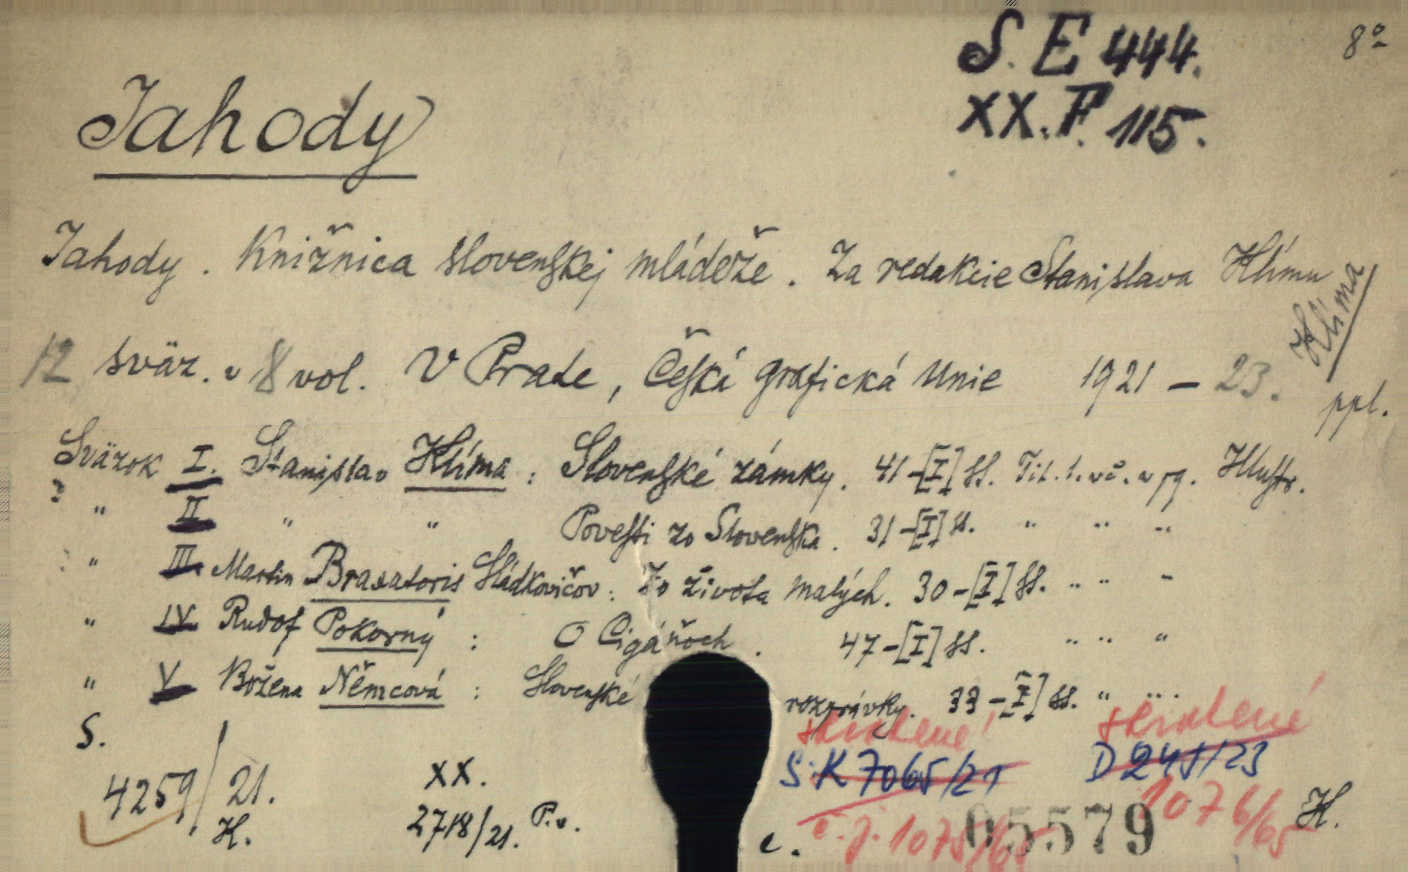 S. E 444.
8°
XX. F. 115.
Jahody
Jahody. Knižnica slovenskej mládeže. Za redakcie Stanislava Klímu
Klíma
12 sväz. v 8 vol. V Prade, Česká grafická Unie 1921 – 23.
ppl.
Sväzok I. Stanislav Klíma: Slovenské zámky. 41-[I] ss. Tit. l. v č. v pg. Illustr.
" II " " Povesti zo Slovenska. 31-[I] ss. " " "
" III. Martin Braxatoris Sládkovičov: Zo života malých. 30-[I] ss. " " "
" IV Rudof Pokorný: O Cigáňoch. 47-[I] ss. " " "
" V Božena Němcová: Slovenské rozprávky. 33-[I] ss. " " "
S.
skrátené skrátené
4259/21. XX. S. K 7065/21 D 245/23
H. 2718/21. P.v. č. j. 1075/65 1076/65 H.
c. 05579